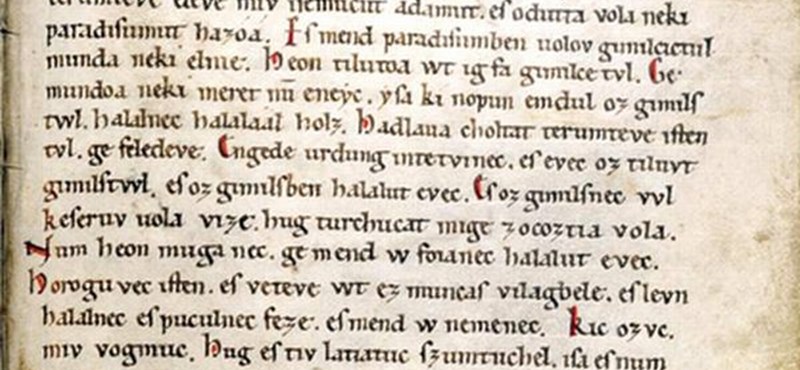 terumteve eleve miv iſemucut adamut. eſ odutta vola neki
paradiſumut hazoa. Eſ mend paradiſumben uolov gimilcictul
munda neki elnie. Heon tilutoa wt ig fa gimilce tvl. Ge
mundoa neki meret nū eneyc. yſa ki nopun emdul oz gimilſ
twl. halalnec halalaal holz. Hadlaua choltat terumteve iſten
tvl. ge feledeve. Engede urdung intetvinec. eſ evec oz tiluvt
gimilſtwl. eſ oz gimilſben halalut evec. Eſ oz gimilſnec vvl
keſeruv uola vize. hug turchucat mige zocoztia vola.
Num heon muga nec. ge mend w foianec halalut evec.
Horogu vec iſten. eſ veteve wt ez muncaſ vilagbele. eſ levn
halalnec eſ puculnec feze. eſ mend w nemenec. Kic ozvc.
miv vogmuc. Hug eſ tiv latiatuc ſzumtuchel. iſa eſ num